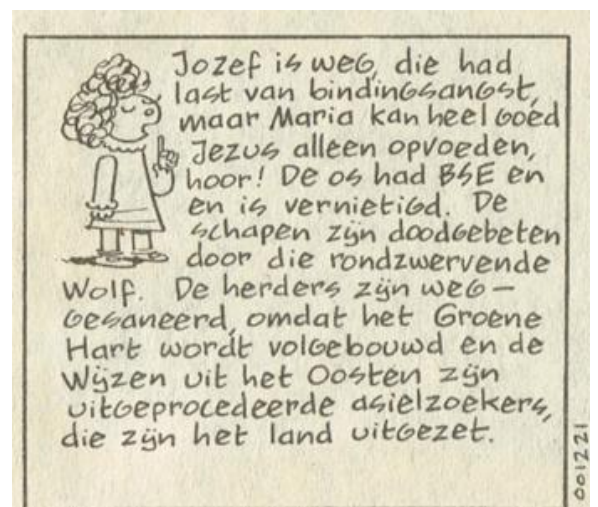 Jozef is weg, die had
last van bindingsangst,
maar Maria kan heel goed
Jezus alleen opvoeden,
hoor! De os had BSE en
en is vernietigd. De
schapen zijn doodgebeten
door die rondzwervende
Wolf. De herders zijn weg-
gesaneerd, omdat het Groene
Hart wordt volgebouwd en de
Wijzen uit het Oosten zijn
uitgeprocedeerde asielzoekers,
die zijn het land uitgezet.
001221